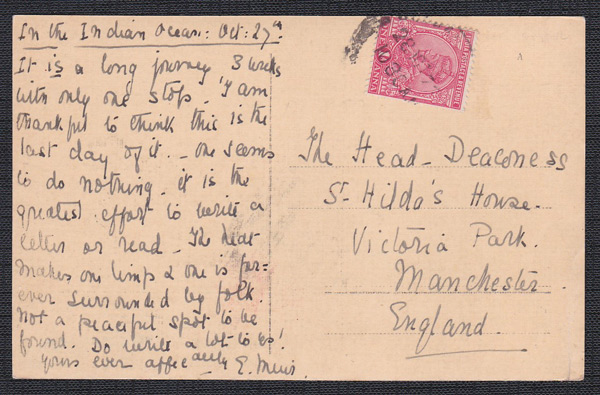 In the Indian Ocean: Oct: 27th
It is a long journey 3 weeks
with only one stop. I am
thankful to think this is the
last day of it. - One seems
to do nothing. it is the
greatest effort to write a
letter or read - The heat
makes one limp & one is for-
ever surrounded by folk.
Not a peaceful spot to be
found. Do write a lot to us!
Yours ever affecately E. Muir.
The Head-Deaconess
St Hilda's House.
Victoria Park.
Manchester.
England.
INDIA POSTAGE & REVENUE
ONE ANNA